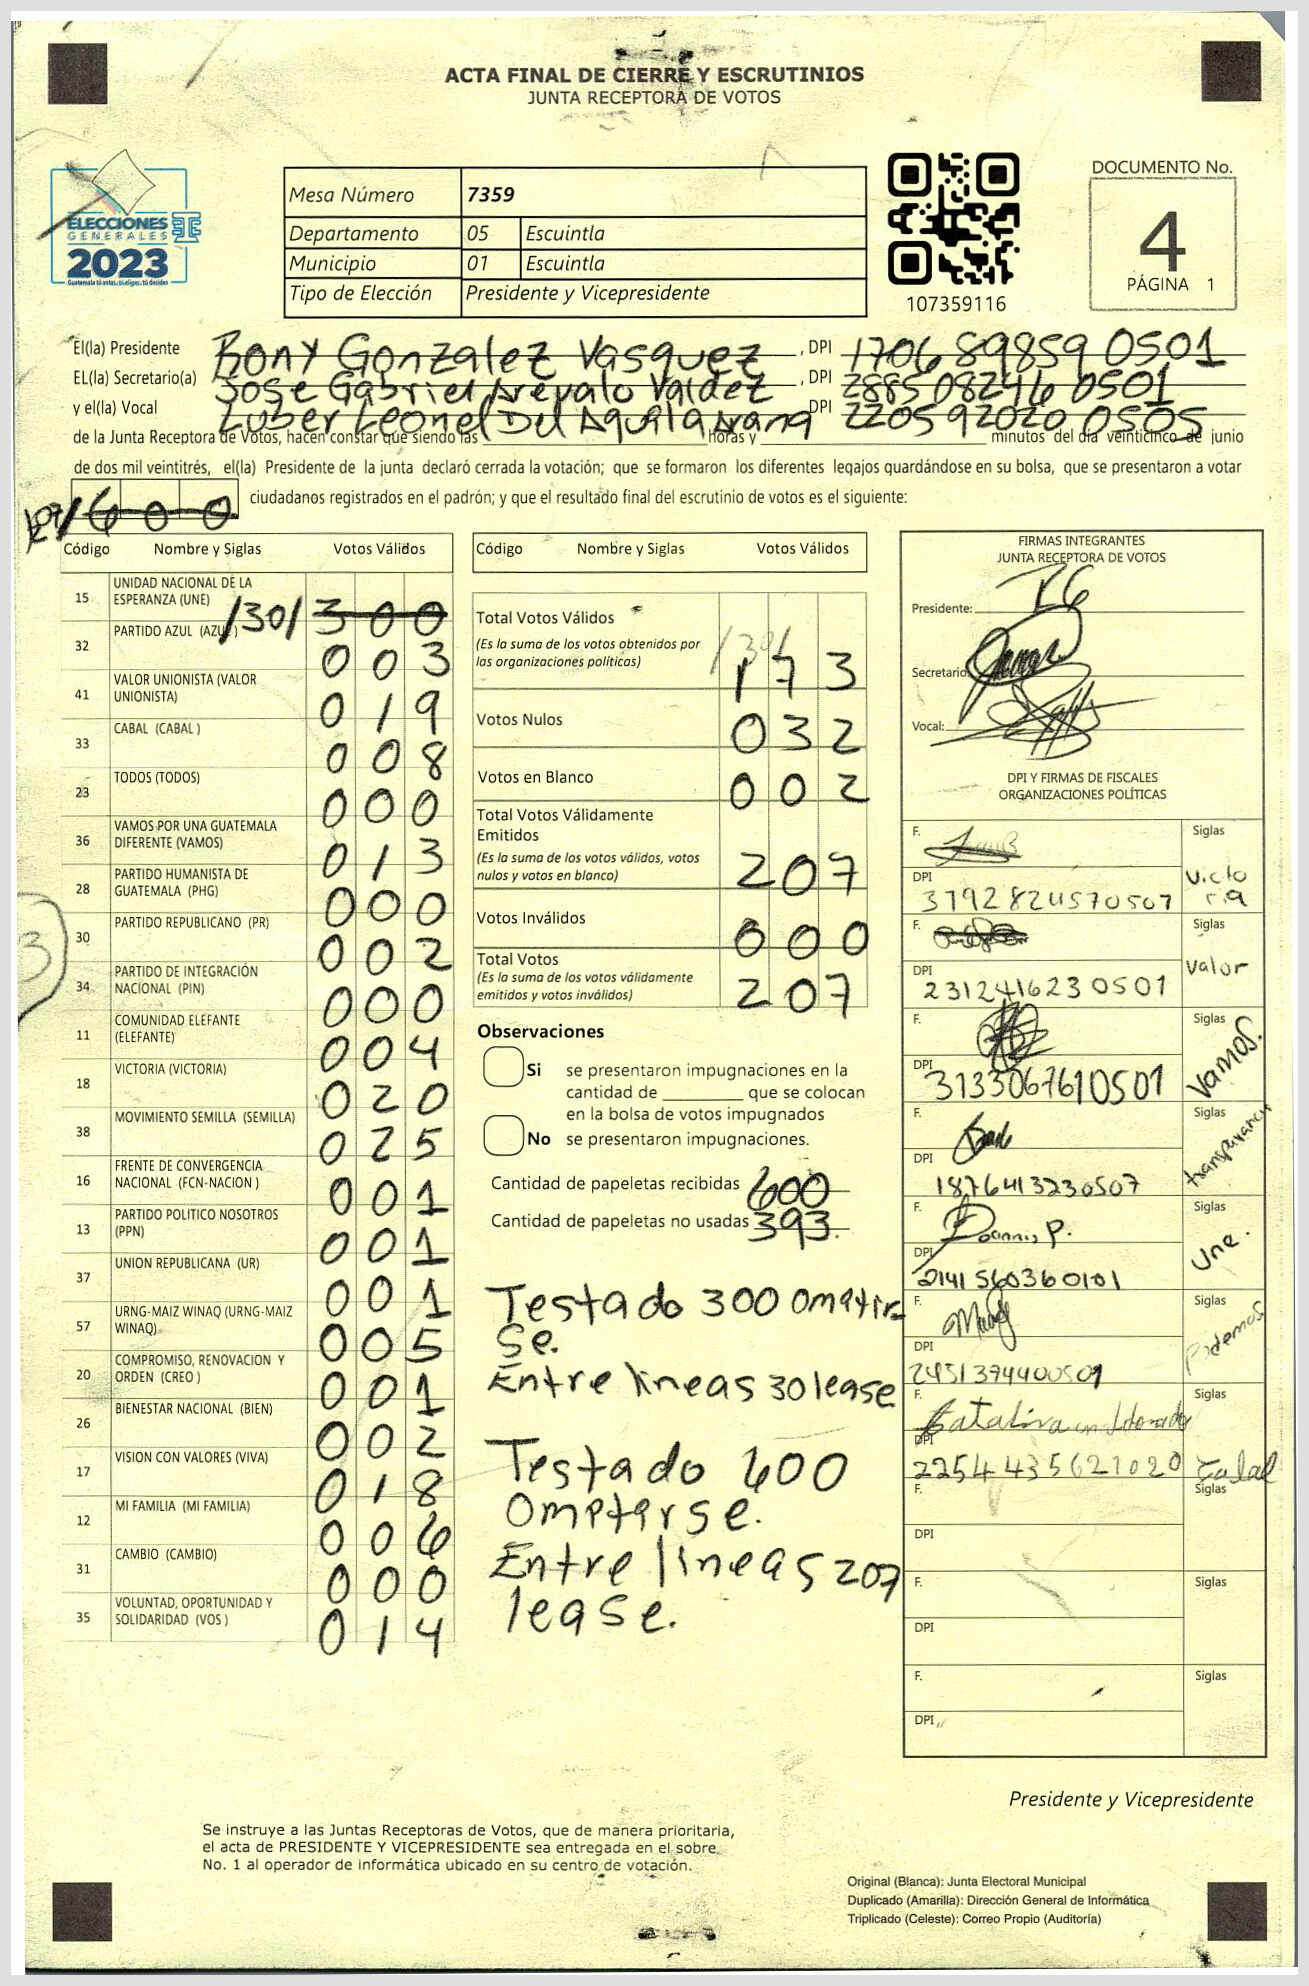 ACTA FINAL DE CIERRE Y ESCRUTINIOS
JUNTA RECEPTORA DE VOTOS
ELECCIONES
GENERALES
2023
Mesa Número 7359
Departamento 05 Escuintla
Municipio 01 Escuintla
Tipo de Elección Presidente y Vicepresidente
107359116
DOCUMENTO No.
4
PÁGINA 1
El(la) Presidente Rony Gonzalez Vasquez, DPI 1706 89859 0501
EL(la) Secretario(a) Jose Gabriel Arevalo Valdez, DPI 2885 08246 0501
y el(la) Vocal Luber Leonel Del Aguila Arana DPI 2205 92020 0505
de la Junta Receptora de Votos, hacen constar que siendo las horas y minutos del día veinticinco de junio
de dos mil veintitrés, el(la) Presidente de la junta declaró cerrada la votación; que se formaron los diferentes legajos guardándose en su bolsa, que se presentaron a votar
/207/ 600 ciudadanos registrados en el padrón; y que el resultado final del escrutinio de votos es el siguiente:
Código Nombre y Siglas Votos Válidos
15 UNIDAD NACIONAL DE LA ESPERANZA (UNE) /30/ 300
32 PARTIDO AZUL (AZUL) 003
41 VALOR UNIONISTA (VALOR UNIONISTA) 019
33 CABAL (CABAL ) 008
23 TODOS (TODOS) 000
36 VAMOS POR UNA GUATEMALA DIFERENTE (VAMOS) 013
28 PARTIDO HUMANISTA DE GUATEMALA (PHG) 000
30 PARTIDO REPUBLICANO (PR) 002
34 PARTIDO DE INTEGRACIÓN NACIONAL (PIN) 000
11 COMUNIDAD ELEFANTE (ELEFANTE) 004
18 VICTORIA (VICTORIA) 020
38 MOVIMIENTO SEMILLA (SEMILLA) 025
16 FRENTE DE CONVERGENCIA NACIONAL (FCN-NACION ) 001
13 PARTIDO POLITICO NOSOTROS (PPN) 001
37 UNION REPUBLICANA (UR) 001
57 URNG-MAIZ WINAQ (URNG-MAIZ WINAQ) 005
20 COMPROMISO, RENOVACION Y ORDEN (CREO ) 001
26 BIENESTAR NACIONAL (BIEN) 002
17 VISION CON VALORES (VIVA) 018
12 MI FAMILIA (MI FAMILIA) 006
31 CAMBIO (CAMBIO) 000
35 VOLUNTAD, OPORTUNIDAD Y SOLIDARIDAD (VOS ) 014
3
Código Nombre y Siglas Votos Válidos
Total Votos Válidos 173
(Es la suma de los votos obtenidos por
las organizaciones políticas)
/30/
Votos Nulos 032
Votos en Blanco 002
Total Votos Válidamente
Emitidos 207
(Es la suma de los votos válidos, votos
nulos y votos en blanco)
Votos Inválidos 000
Total Votos 207
(Es la suma de los votos válidamente
emitidos y votos inválidos)
Observaciones
Si se presentaron impugnaciones en la
cantidad de que se colocan
en la bolsa de votos impugnados
No se presentaron impugnaciones.
Cantidad de papeletas recibidas 600
Cantidad de papeletas no usadas 393
Testado 300 omitir
se.
Entre lineas 30 lease
Testado 600
omitirse.
Entre lineas 207
lease.
FIRMAS INTEGRANTES
JUNTA RECEPTORA DE VOTOS
Presidente:
Secretario
Vocal:
DPI Y FIRMAS DE FISCALES
ORGANIZACIONES POLÍTICAS
F. Siglas Victoria
DPI 3792824570507
F. Siglas Valor
DPI 2312416230501
F. Siglas Vamos.
DPI 3133067610501
F. Siglas
DPI 1876413230507
F. Siglas Une.
DPI 2141560360101
F. Siglas Podemos
DPI 2451394400509
F. Catalina Siglas
DPI 2254435621020 Cabal
F. Siglas
DPI
F. Siglas
DPI
F. Siglas
DPI
Presidente y Vicepresidente
Se instruye a las Juntas Receptoras de Votos, que de manera prioritaria,
el acta de PRESIDENTE Y VICEPRESIDENTE sea entregada en el sobre
No. 1 al operador de informática ubicado en su centro de votación.
Original (Blanca): Junta Electoral Municipal
Duplicado (Amarilla): Dirección General de Informática
Triplicado (Celeste): Correo Propio (Auditoría)